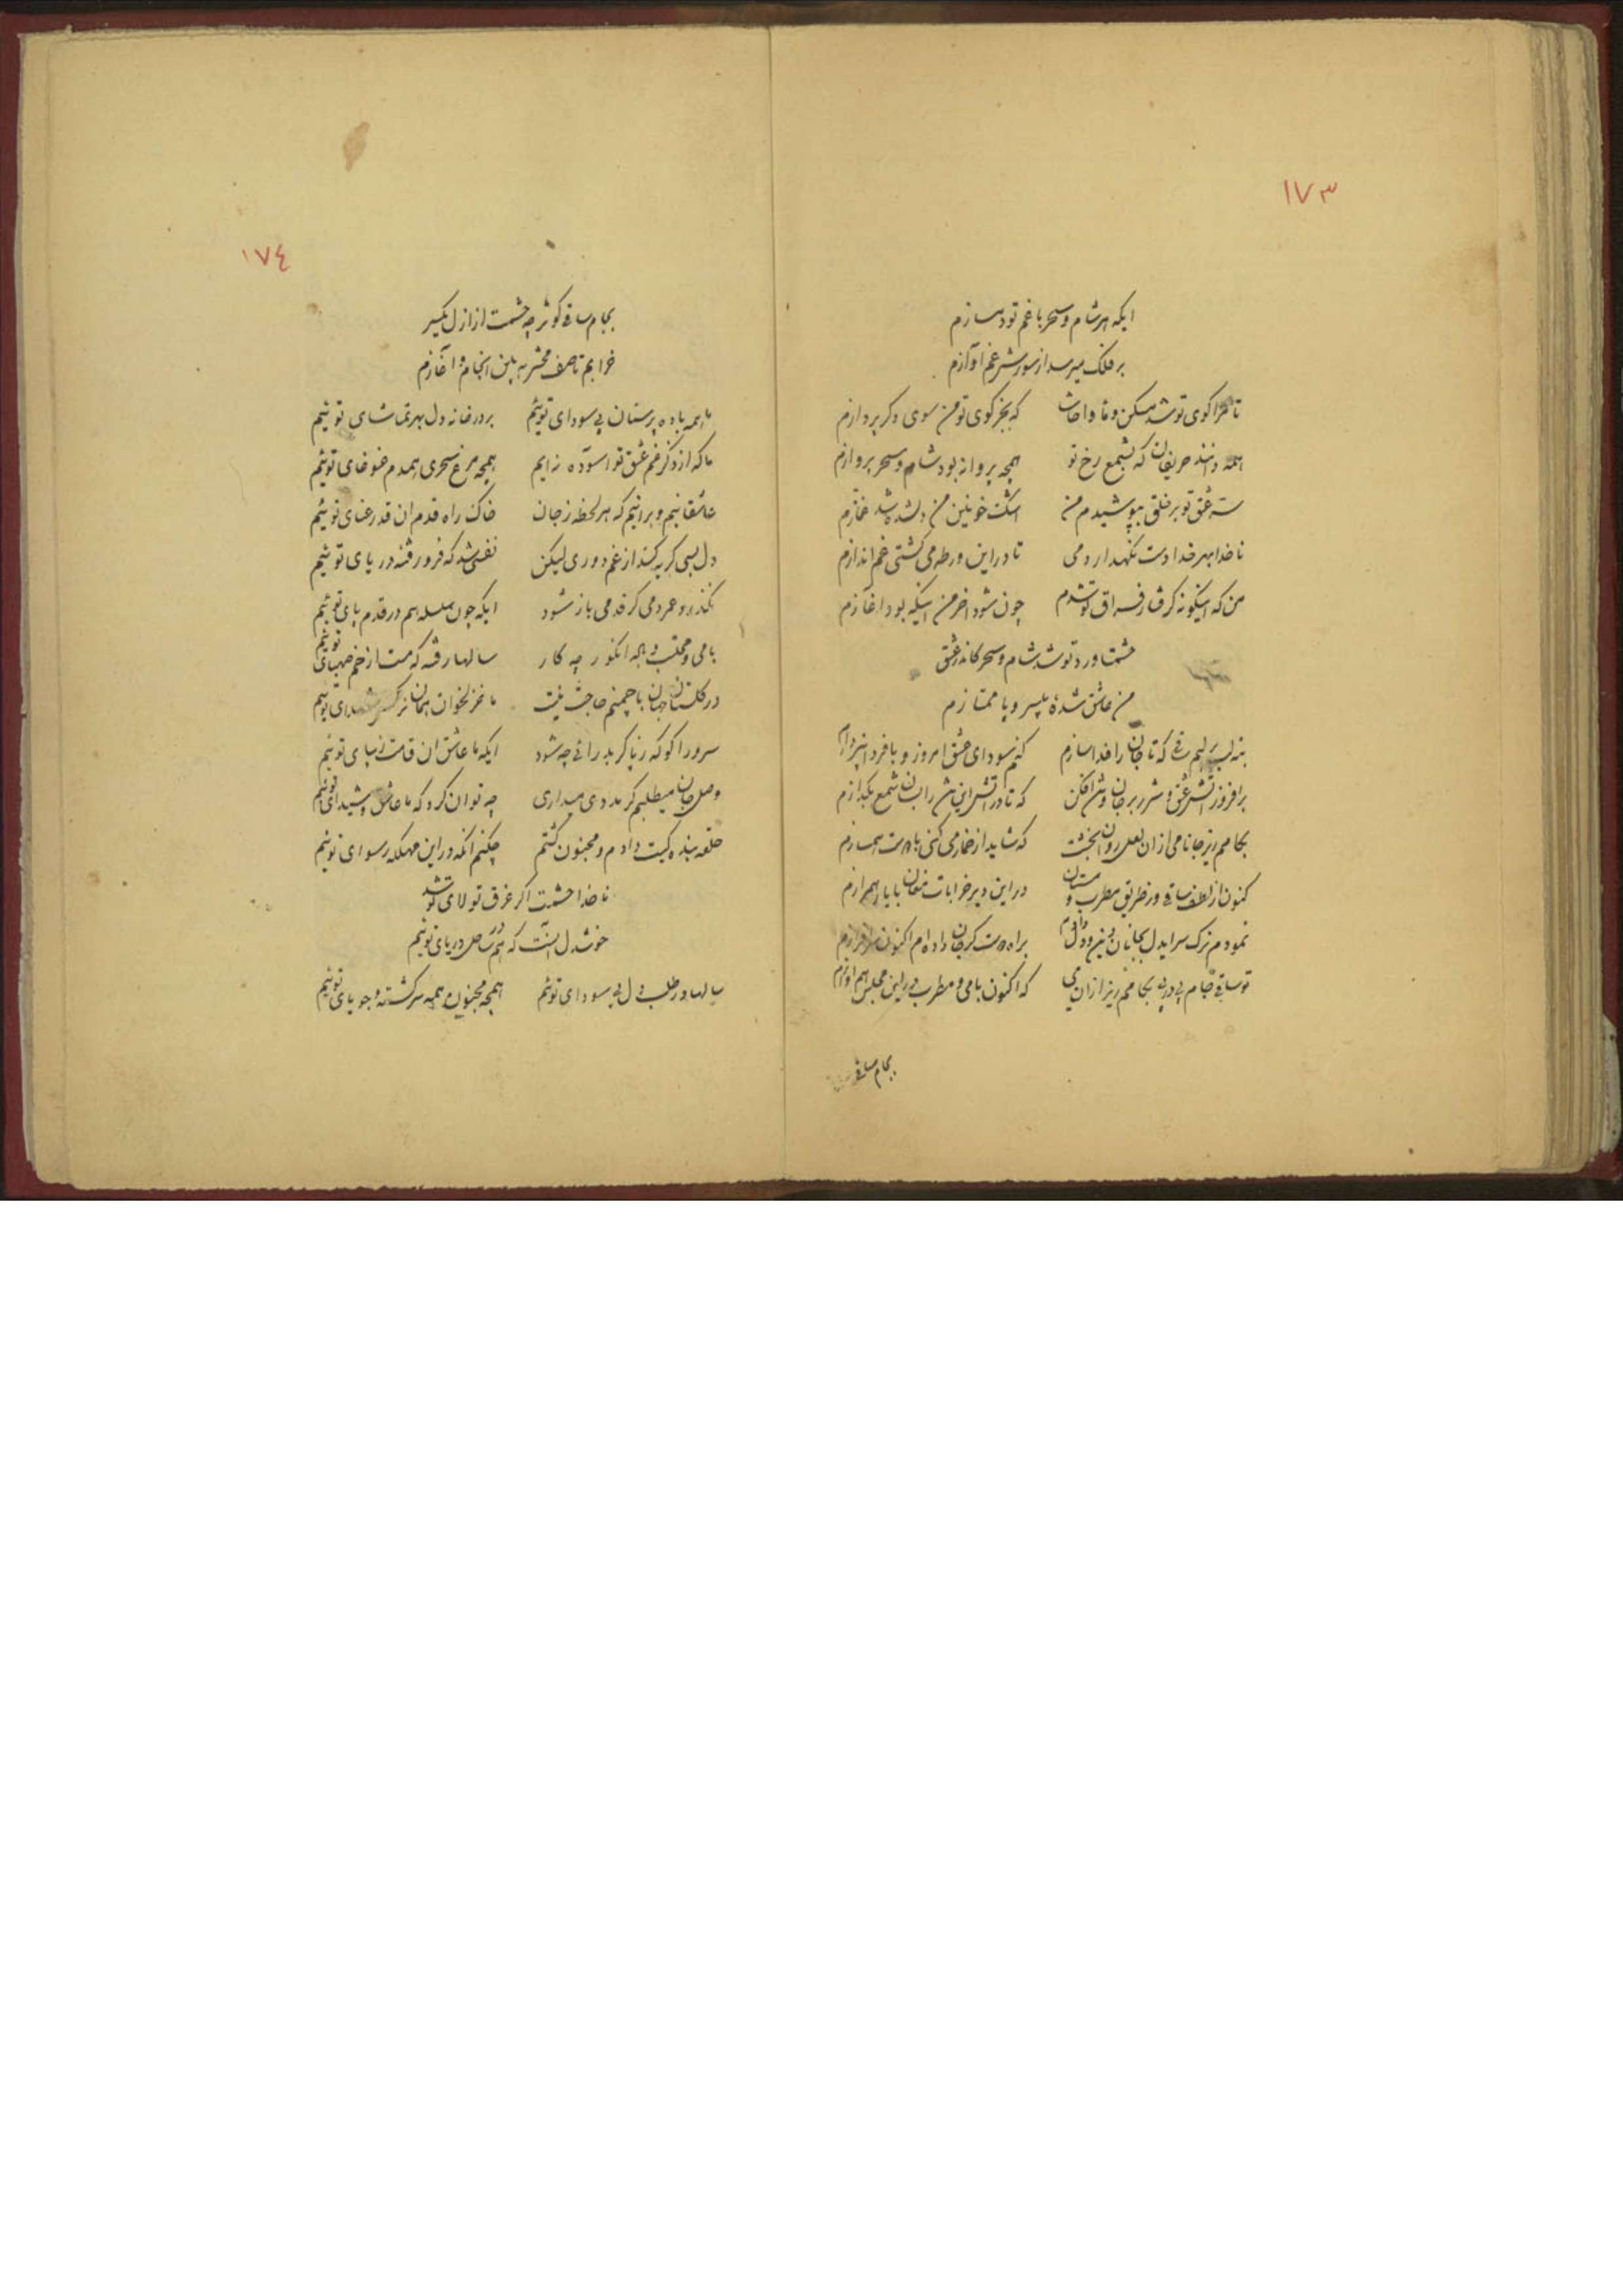 ١٧٣
ایکه هر شام و سحر با غم تو دمسازم
بر فلک میرسد از سوزش غم آوازم
تا مرا کوی تو شد مسکن و ماوا حاشا که بجز کوی تو من سوی دگر پردازم
همه دانند حریفان که بشمع رخ تو همچو پروانه بود شام و سحر پروازم
سر عشق تو بر خلق بپوشیدم من اشک خونین من دلشده شد غمازم
ناخدا بهر خدا دست نگهدار دمی تا در این ورطه می کشتی غم اندازم
من که اینگونه گرفتار فراق تو شدم چون شود آخر من اینکه بود آغازم
حشمتا ورد تو شد شام و سحر کاندر عشق
من عاشق شده بی سر و پا ممتازم
بنه لب بر لبم ساقی که تا جان را فدا سازم کنم سودای عشق امروز و با فردا نپردازم
برافروز آتش عشق و شرر بر جان و تن افکن که تا در آتش این تن را بسان شمع بگدازم
بجامم ریز جانا می از آن لعل روان بخشت که شاید از خمار می کنی باده ست همسازم
کنون از لطف ساقی وز طریق مطرب و مستان در این دیر خرابات مغان با یار همرازم
نمودم ترک سر ایدل بجانان دین و دل دادم براه دوست گر جان داده ام اکنون سرافرازم
تو ساقی جام پی در پی بجامم ریز از آن می که اکنون با می و مطرب در این مجلس هم آوازم
بجام ساقی
١٧٤
بجام ساقی کوثر چه حشمت از ازل یکسر
خرابم تا صف محشر ببین انجام و آغازم
ما همه باده پرستان پی سودای توئیم بر در خانه دل بهر تماشای توئیم
ما که از ذکر غم عشق تو آسوده نه ایم همچه مرغ سحری همدم غوغای توئیم
عاشقانیم و برانیم که هر لحظه ز جان خاک راه قدم ان قد رعنای توئیم
دل بسی گریه کند از غم دوری لیکن نفسی شد که فرو رفته دریای توئیم
نگذرد عمر دمی گر قدمی باز شود ایکه چون سلسله هم در قدم پای توئیم
با می و محتسب و باده انگور چه کار سالها رفته که مست از خم صهبای توئیم
در گلستان جهان با چمنم حاجت نیست ما غزلخوان همان نرگس شهلای توئیم
سرو را گو که ز پا گر بدرائی چه شود ایکه ما عاشق ان قامت زیبای توئیم
وصل جانان میطلبم گر مددی میداری چه توان کرد که ما عاشق و شیدای توئیم
حلقه بنده گیت دادم و مجنون گشتم چکنم آنکه در این مهلکه رسوای توئیم
ناخدا حشمت اگر غرق تولای تو شد
خوشدل آنست که هم ساحل دریای توئیم
سالها در طلب دل پی سودای توئیم همچه مجنون همه سرگشته و جویای توئیم